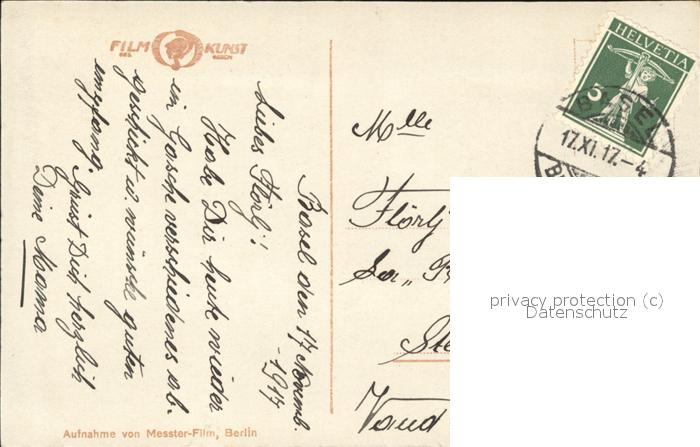 FILM KUNST
HELVETIA
5
BASEL
17.XI.17.–4
Basel den 17 Novemb.
1917
Liebes Flörly!
Habe Dir heute wieder
ein Gosche verschiedenes ab.
geschickt u. wünsche guten
empfang. Grüst Dich herzlich
Deine Mama
Mlle
Flörly
Vaud
privacy protection (c)
Datenschutz
Aufnahme von Messter-Film, Berlin